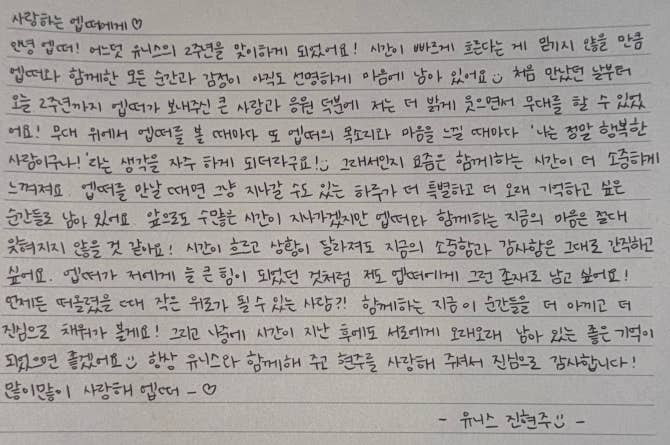 사랑하는 엡떠에게♡
안녕 엡떠! 어느덧 유니스의 2주년을 맞이하게 되었어요! 시간이 빠르게 흐른다는 게 믿기지 않을 만큼
엡떠와 함께한 모든 순간과 감정이 아직도 선명하게 마음에 남아 있어요:) 처음 만났던 날부터
오늘 2주년까지 엡떠가 보내주신 큰 사랑과 응원 덕분에 저는 더 밝게 웃으면서 무대를 할 수 있었
어요! 무대 위에서 엡떠를 볼 때마다 또 엡떠의 목소리와 마음을 느낄 때마다 '나는 정말 행복한
사람이구나!'라는 생각을 자주 하게 되더라구요!:) 그래서인지 요즘은 함께하는 시간이 더 소중하게
느껴져요. 엡떠를 만날 때면 그냥 지나갈 수도 있는 하루가 더 특별하고 더 오래 기억하고 싶은
순간들로 남아 있어요. 앞으로도 수많은 시간이 지나가겠지만 엡떠와 함께하는 지금의 마음은 절대
잊혀지지 않을 것 같아요! 시간이 흐르고 상황이 달라져도 지금의 소중함과 감사함은 그대로 간직하고
싶어요. 엡떠가 저에게 늘 큰 힘이 되었던 것처럼 저도 엡떠에게 그런 존재로 남고 싶어요!
언제든 떠올렸을 때 작은 위로가 될 수 있는 사람?! 함께하는 지금 이 순간들을 더 아끼고 더
진심으로 채워가 볼게요! 그리고 나중에 시간이 지난 후에도 서로에게 오래오래 남아 있는 좋은 기억이
되었으면 좋겠어요:) 항상 유니스와 함께해 주고 현주를 사랑해 주셔서 진심으로 감사합니다!
많이많이 사랑해 엡떠 - ♡
- 유니스 진현주:) -